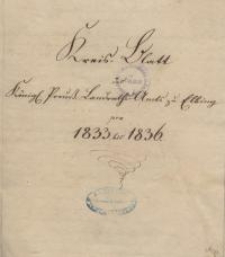 Kreis-Blatt
des
Königl. Preuß. Landräthl. Amts zu Elbing
pro
1833 bis 1836.